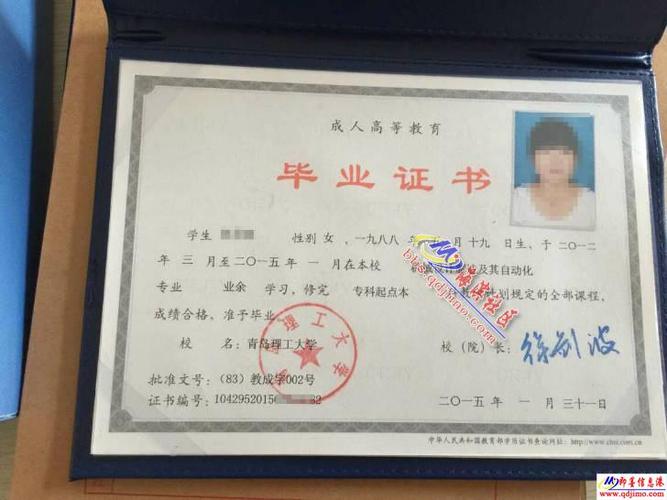 成人高等教育
毕业证书
学生 性别 女 ，一九八八 年 月 十九 日生，于 二〇一二
年 三 月至 二〇一五 年 一 月在本校 及其自动化
专业 业余 学习，修完 专科起点本 计划规定的全部课程，
成绩合格，准予毕业。
校 名：青岛理工大学
校（院）长：
批准文号：（83）教成字002号
证书编号：1042952015 32
二〇一五 年 一 月 三十一日
中华人民共和国教育部学历证书查询网址：http://www.chsi.com.cn
即墨信息港
www.qdjimo.com